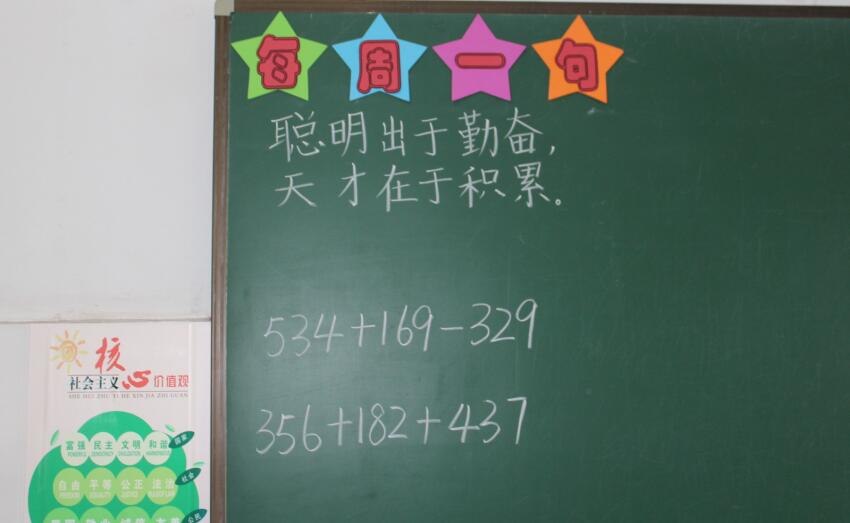 每周一句
聪明出于勤奋,
天才在于积累。
534+169-329
356+182+437
核心
社会主义 价值观
SHE HUI ZHU YI HE XIN JIA ZHI GUAN
富强 民主 文明 和谐 国家
POWERFUL DEMOCRACY CIVILIZATION HARMONIOUS
自由 平等 公正 法治 社会
FREEDOM EQUALITY JUSTICE RULE OF LAW
公民